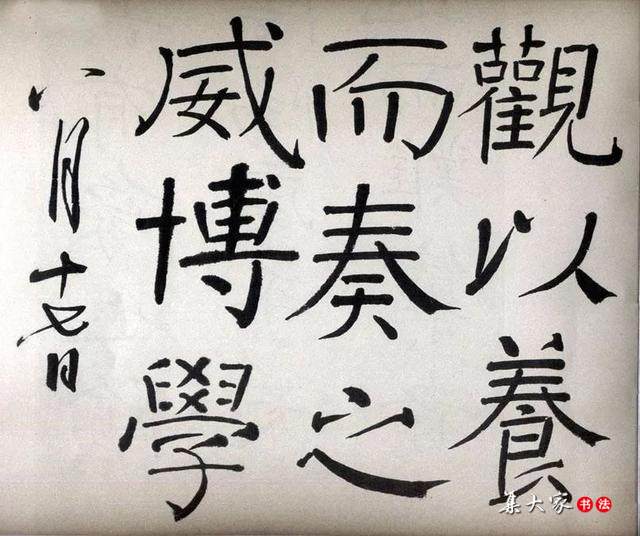 觀以養
而奏之
威博學
八月十七日
集大家书法